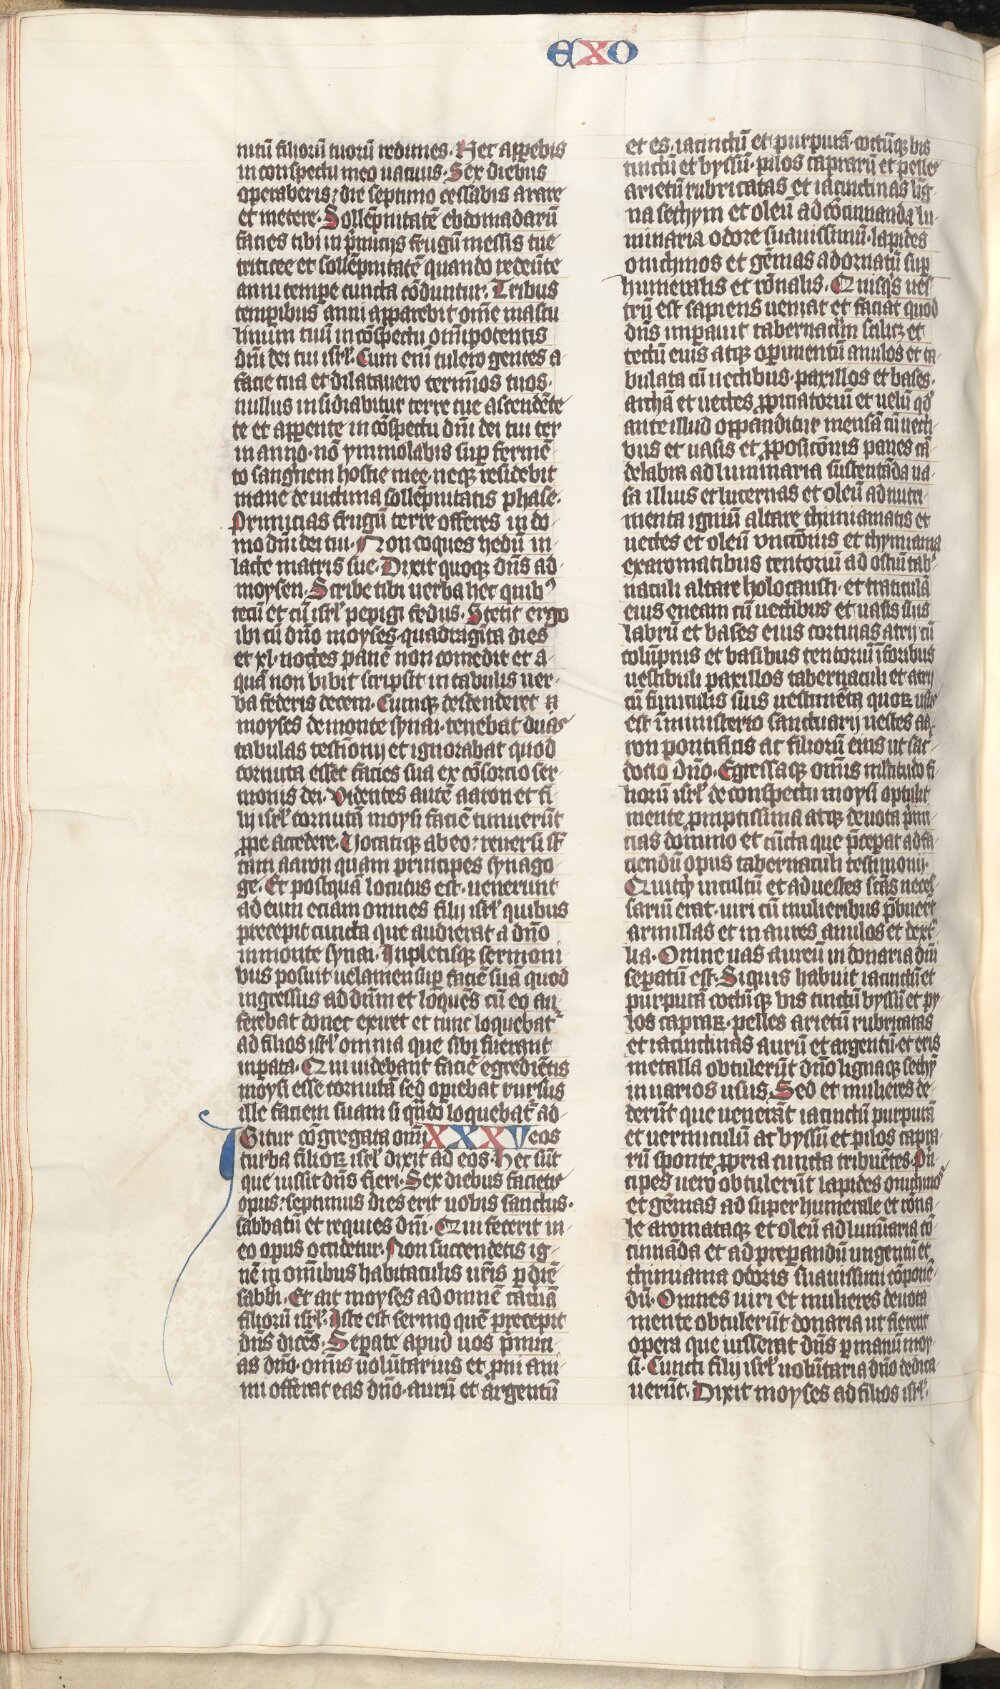 EXO
nitū filiorū tuorū redimes. Nec appebis
in conspectu meo uacuus. Sex diebus
operaberis; die septimo cessabis arare
et metere. Sollēpnitatē ebdomadarū
facies tibi in pͥmicijs frugū messis tue
triticee et sollēpnitatē quando redeūte
anni tempe cuncta cōduntur. Tribus
temporibus anni apparebit om̄e mascu
linum tuū in cōspectu omīpotentis
dn̄i dei tui isrl̓. Cum enī tulero gentes a
facie tua et dilatauero termīos tuos.
nullus insidiabitur terre tue ascendēte
te et apparente in cōspectu dn̄i dei tui ter
in anno. nō ymmolabis sup fermē
to sanguīem hostie mee. neqꝫ residebit
mane de uictima sollēpnitatis phase.
Primicias frugū terre offeres in do
mo dn̄i dei tui. Non coques hedū in
lacte matris sue. Dixit quoqꝫ dn̄s ad
moysen. Scribe tibi uerba hec quibꝰ
tecū et cū isrl̓ pepigi fedus. Stetit ergo
ibi cū dn̄o moyses quadragīta dies
et xl. noctes panē non comedit et a
quā non bibit scripsit in tabulis uer
ba federis decem. Cumqꝫ descenderet
moyses de monte synai. tenebat duas
tabulas testionij et ignorabat quod
cornuta esset facies sua ex cōsorcio ser
monis dei. Videntes autē aaron et fi
lij isrl̓ cornutā moysi faciē timuerūt
ꝓpe accedere. Uocatiqꝫ ab eo: reuersi sūt
tam aaron quam principes synago
ge. Et postquā locutus est. uenerunt
ad eum eciam omnes filij isrl̓ quibus
precepit cuncta que audierat a dn̄o
in monte synai. Inpletisqꝫ sermoni
bus posuit uelamen sup faciē suā quod
ingressus ad dn̄m et loquēs cū eo au
ferebat donec exiret et tunc loquebat
ad filios isrl̓ omnia que sibi fuerant
inpata. Qui uidebant faciē egrediētis
moysi esse cornutā sed opiebat rursus
ille faciem suam si qn̄do loquebat ad
Igitur cōgregata omī XXXV eos
turba filioꝝ isrl̓ dixit ad eos. Hec sūt
que iussit dn̄s fieri. Sex diebus facietis
opus: septimus dies erit uobis sanctus.
sabbatū et requies dn̄i. Qui fecerit in
eo opus occidetur. Non succendetis ig
nē in omībus habitaculis ur̄is p diē
sabbi. Et ait moyses ad omnē cateruā
filiorū isrl̓. Iste est sermo quē precepit
dn̄s dicēs. Separate apud uos pͥmici
as dn̄o. omīs uolūtarius et pͥni ani
mi offerat eas dn̄o. aurū et argentū
et es. iacinctū et purpurā. coctūqꝫ bis
tinctū et byssū. pilos caprarū et pelles
arietū rubricatas et iacinctinas lig
na sethym et oleū ad cōcinnanda lu
minaria odore suauissimū. lapides
onichinos et gēmas ad ornatū sup
humeralis et rōnalis. Quisqͥs ues
trū est sapiens ueniat et faciat quod
dn̄s imperauit tabernaclm̄ scilicꝫ et
tectū eius atqꝫ operimentū anulos et ta
bulata cū uectibus. paxillos et bases.
archā et uectes ꝓpiciatoriū et uelū qd̓
ante illud oppanditur mensā cū uecti
bus et uasis et ꝓposicōnis panes cā
delabra ad luminaria sustentāda ua
sa illius et lucernas et oleū ad nutri
menta igniū altare thimiamatis et
uectes et oleū unctōnis et thymiama
ex aromatibus tentoriū ad ostiū tab̓
naculi altare holocausti. et craticulā
eius eneam cū uectibus et uasis suis
labrū et bases eius cortinas atrij cū
colūpnis et basibus tentoriū ī foribus
uestibuli paxillos tabernaculi et atrij
cū funiculis suis uestimēta quoꝝ usus
est ī ministerio sanctuarij uestes aa
ron pontificis ac filiorū eius ut sac
docio dn̄o. Egressaqꝫ omīs multitudo fi
liorū isrl̓ de conspectu moysi optulit
mente promptissima atqꝫ deuota pͥmi
cias domino et cūcta que p̄ceperat ad fa
ciendū opus tabernaculi testimonij.
Quicqͥd in cultū et ad uestes scās neces
sariū erat. uiri cū mulieribus p̄buerūt
armillas et in aures anulos et dext
lia. Omne uas aureū in donaria dn̄i
sepatū est. Siquis habuit iacinctū et
purpurā coctūqꝫ bis tinctū byssū et py
los capraꝝ. pelles arietū rubricatas
et iacinctinas aurū et argentū. et eris
metalla obtulerūt dn̄o lignaqꝫ sethym
in uarios usus. Sed et mulieres de
derūt que uenerāt iacinctū purpurā
et uermiculū ac byssū et pilos capra
rū sponte ꝓpria cuncta tribuētes. Pn̄
cipes uero obtulerūt lapides onichinos
et gēmas ad super humerale et rōna
le aromataqꝫ et oleū ad luminaria cō
cinnāda et ad preparandū ungentū et
thimiama odoris suauissimi cōponē
dū. Omnes uiri et mulieres deuota
mente obtulerūt donaria ut fierent
opera que iusserat dn̄s p manū moy
si. Cuncti filij isrl̓ uolūtaria dn̄o dedica
uerūt. Dixit moyses ad filios isrl̓.